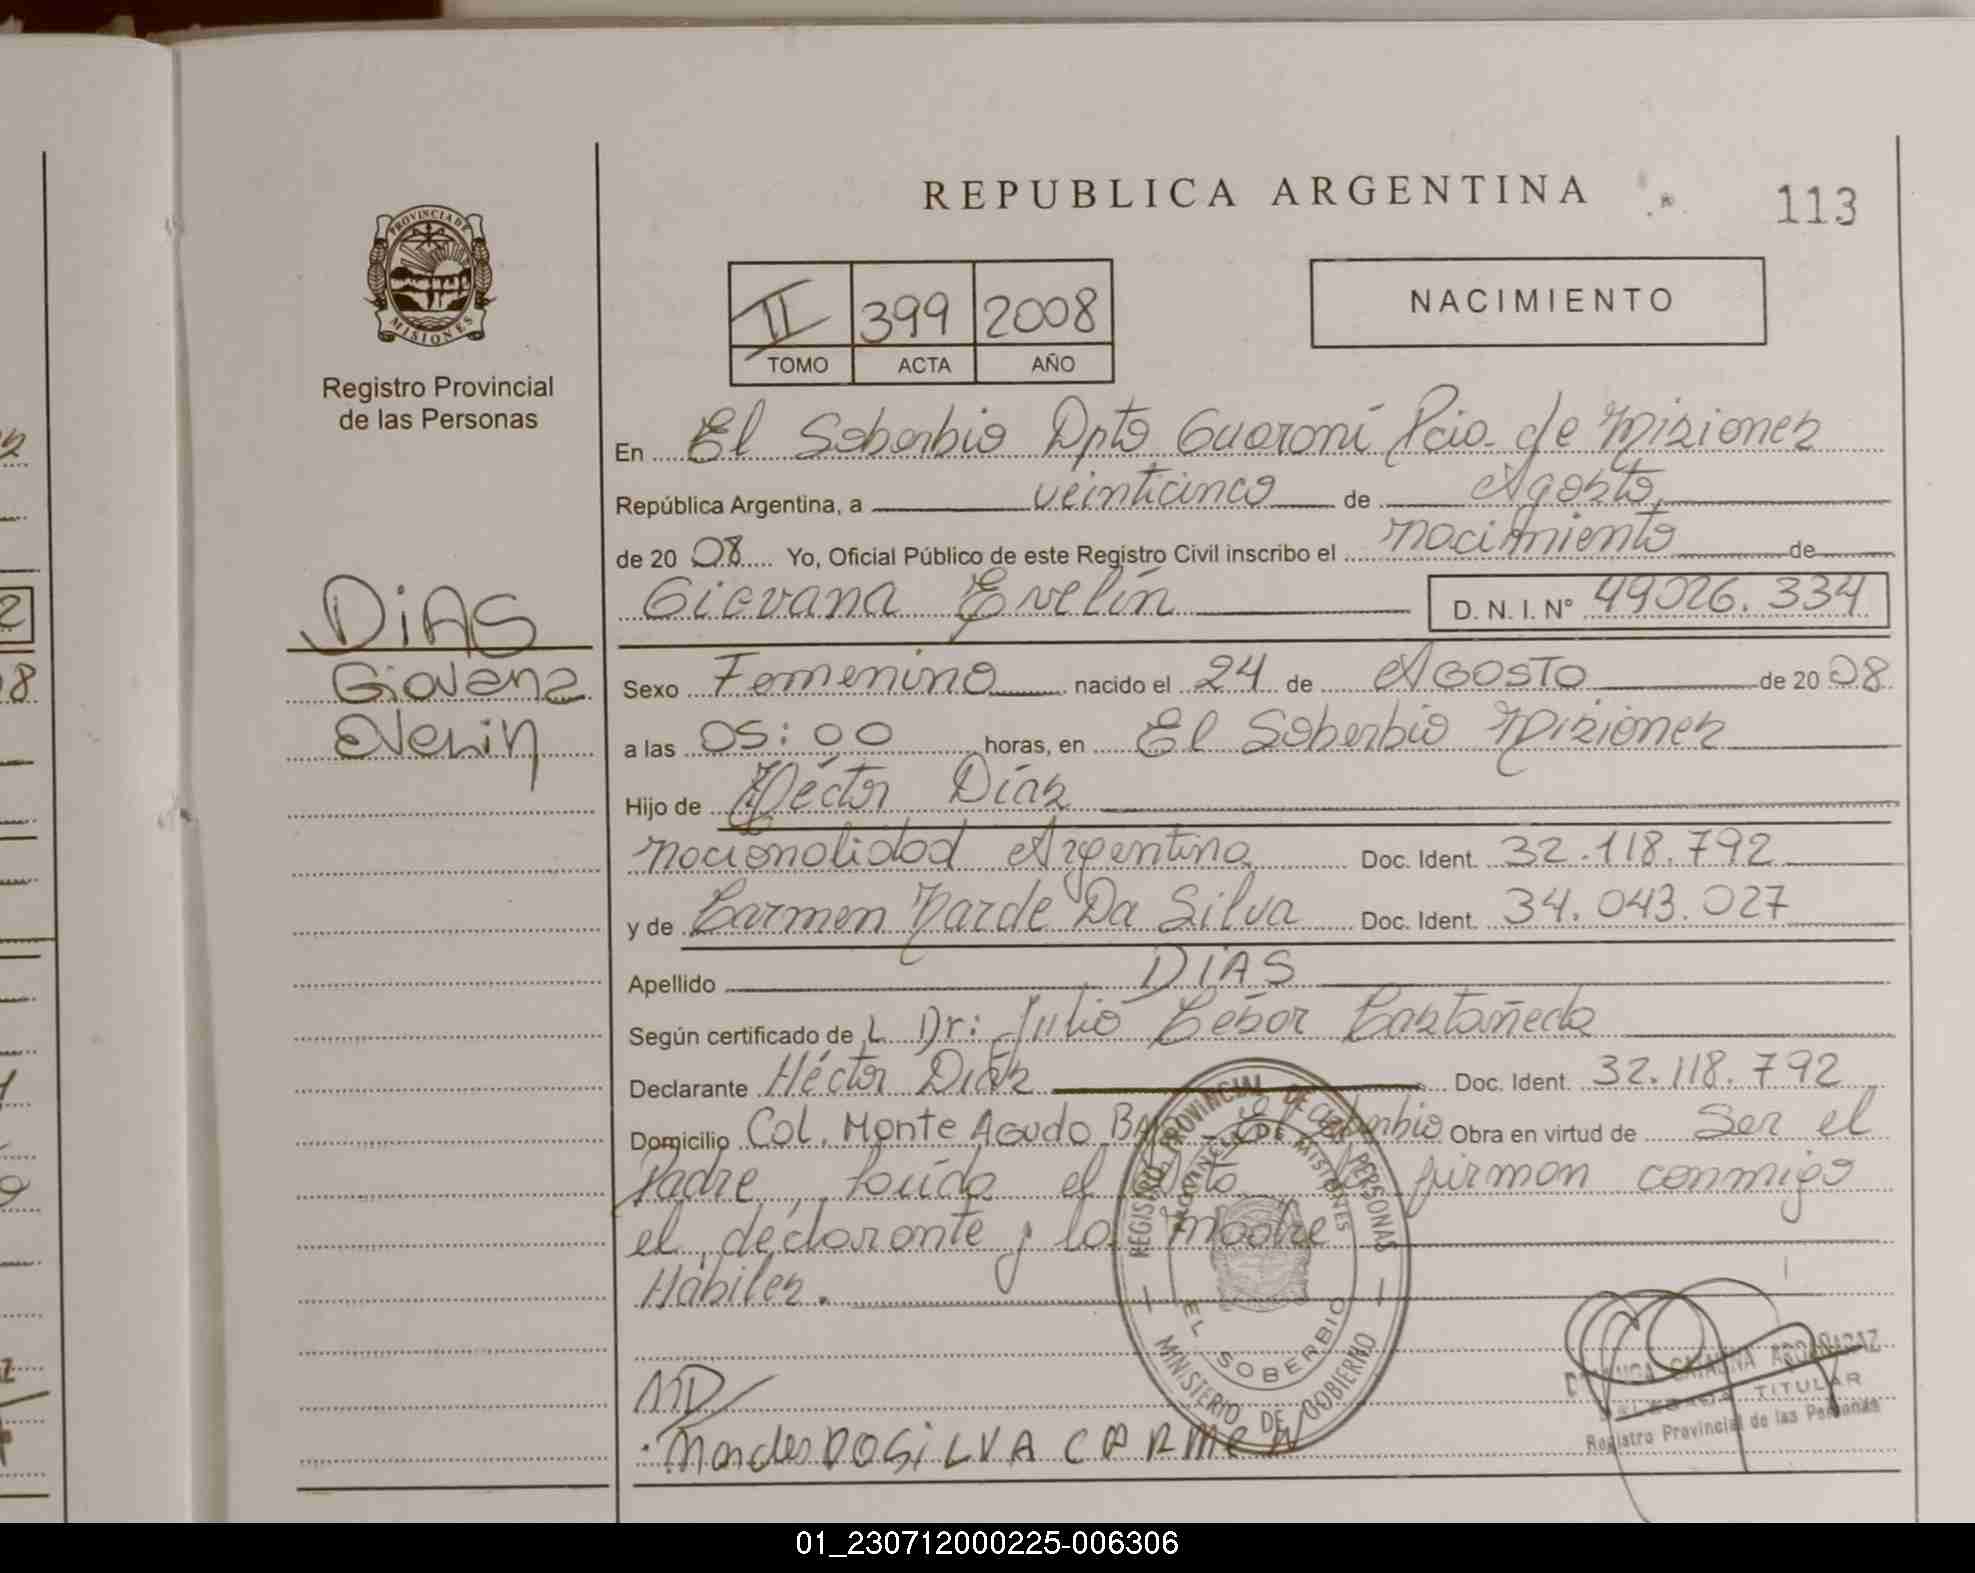 REPUBLICA ARGENTINA
113
PROVINCIA DE
MISIONES
Registro Provincial
de las Personas
II 399 2008
TOMO ACTA AÑO
NACIMIENTO
En El Soberbio Dpto Guaraní Pcia. de Misiones
República Argentina, a veinticinco de Agosto
de 2008 Yo, Oficial Público de este Registro Civil inscribo el nacimiento de
Giovana Evelin D. N. I. Nº 49026.334
DiAS
Giovana
Evelin
Sexo Femenino nacido el 24 de AGOSTO de 2008
a las 05:00 horas, en El Soberbio Misiones
Hijo de Héctor Días
nacionalidad Argentina Doc. Ident. 32.118.792
y de Carmen Da Silva Doc. Ident. 34.043.027
Apellido DIAS
Según certificado de L Dr: Julio César Castañeda
Declarante Héctor Días Doc. Ident. 32.118.792
Domicilio Col. Monte Agudo El Soberbio Obra en virtud de Ser el
Padre, Leída el Acta firman conmigo
el declarante y la madre
Hábiles.
REGISTRO PROVINCIAL DE LAS PERSONAS
PROVINCIA DE MISIONES
EL SOBERBIO
MINISTERIO DE GOBIERNO
HD
DOSiLVA CARMEN
CATALINA
TITULAR
Registro Provincial de las Personas
01_230712000225-006306